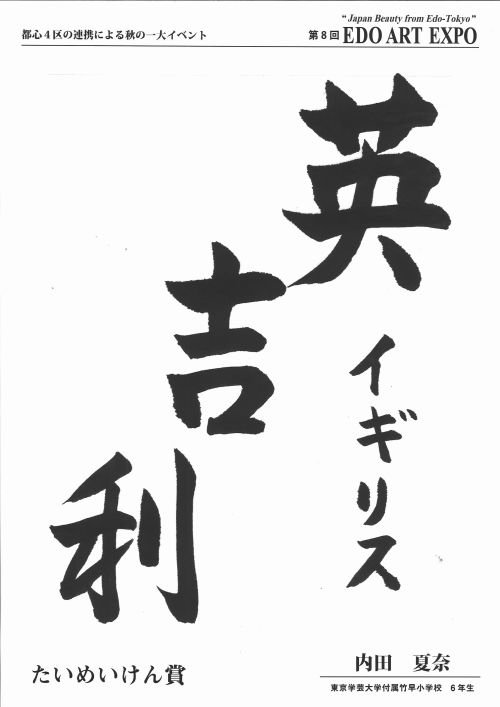 都心4区の連携による秋の一大イベント
"Japan Beauty from Edo-Tokyo"
第8回 EDO ART EXPO
英吉利
イギリス
たいめいけん賞
内田 夏奈
東京学芸大学付属竹早小学校 6年生